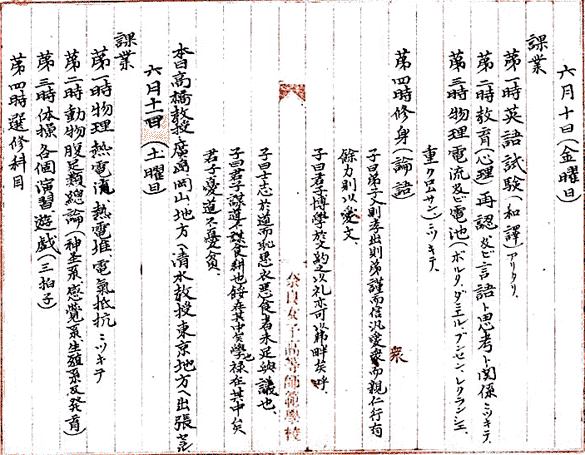 六月十日(金曜日)
課業
第一時英語試験(和譯)アリタリ、
第二時教育(心理)再認及ビ言語ト思考ト関係ニツキテ、
第三時物理電流及ビ電池(ボルタ、ダニエル、ブンゼン、レクランシェ、
重クロムサン)ニツキテ、
第四時修身(論語)
子曰弟子入則孝出則弟謹而信汎愛衆而親仁行有
餘力則以学文、
子曰君子博學於文約之以礼亦可以弗畔矣呼、
子曰士志於道而恥悪衣悪食者未足與議也、
子曰君子謀道不謀食耕也餒在其中矣学也禄在其中矣
君子憂道不憂貧、
本日高橋教授廣島岡山地方ヘ清水教授東京地方ヘ出張
六月十一日(土曜日)
課業
第一時物理熱電流、熱電堆電氣抵抗ニツキテ
第二時動物腹足類總論(神経系感覚系生殖系及発育)
第三時体操各個演習遊戯(三拍子)
第四時選修科目
衆
奈良女子高等師範學校